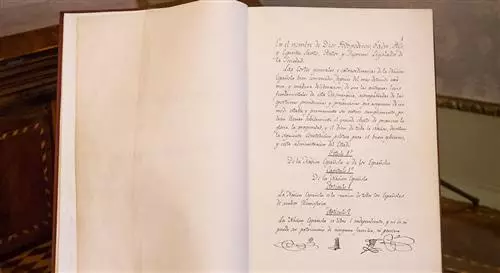 En el nombre de Dios Todopoderoso, Padre, Hijo,
y Espiritu Santo, Autor y Supremo Legislador de
la Sociedad.
Las Cortes generales y extraordinarias de la Nacion
Española, bien convencidas, despues del mas detenido exá-
men, y madura deliberacion, de que las antiguas leyes
fundamentales de esta Monarquia, acompañadas de las
oportunas providencias y precauciones que aseguren de un
modo estable y permanente su entero cumplimiento, po-
drán llenar debidamente el grande objeto de promover la
gloria, la prosperidad, y el bien de toda la Nacion, decretan
la siguiente Constitucion politica para el buen gobierno,
y recta administracion del Estado.
De la Nacion Española y de los Españoles.
Capitulo 1º
De la Nacion Española.
Articulo 1.
La Nacion Española es la reunion de todos los Españoles
de ambos Hemisferios.
Articulo 2.
La Nacion Española es libre é independiente, y no es ni
puede ser patrimonio de ninguna familia, ni persona.